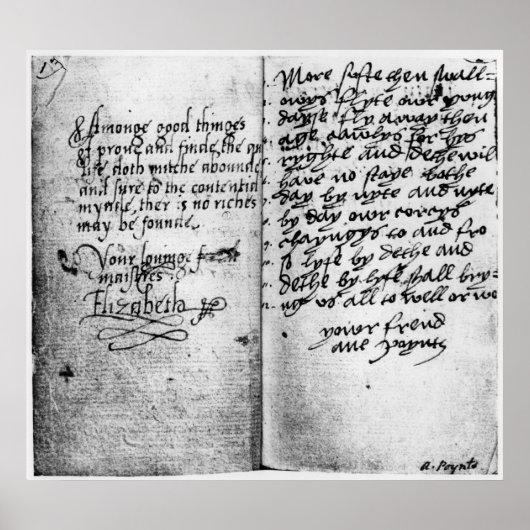 Amonge good thinges
prove and finde, the qu
life, doth mutche abounde
and sure to the contentid
mynde, ther is no riches
may be founde.
Your lovinge
maistres.
Elizabeth
More then swall=
owys flyte owr yong
dayse fly away then
age cawlys for hys
ryghte and dethe will
have no staye bothe
day by nyte and nyte
by day owr corcys
chayngys to and fro
So lyfe by dethe and
dethe by lyfe shall bry=
ng us all to well or wo
yowr freind
ane Poynts
A. Poynts